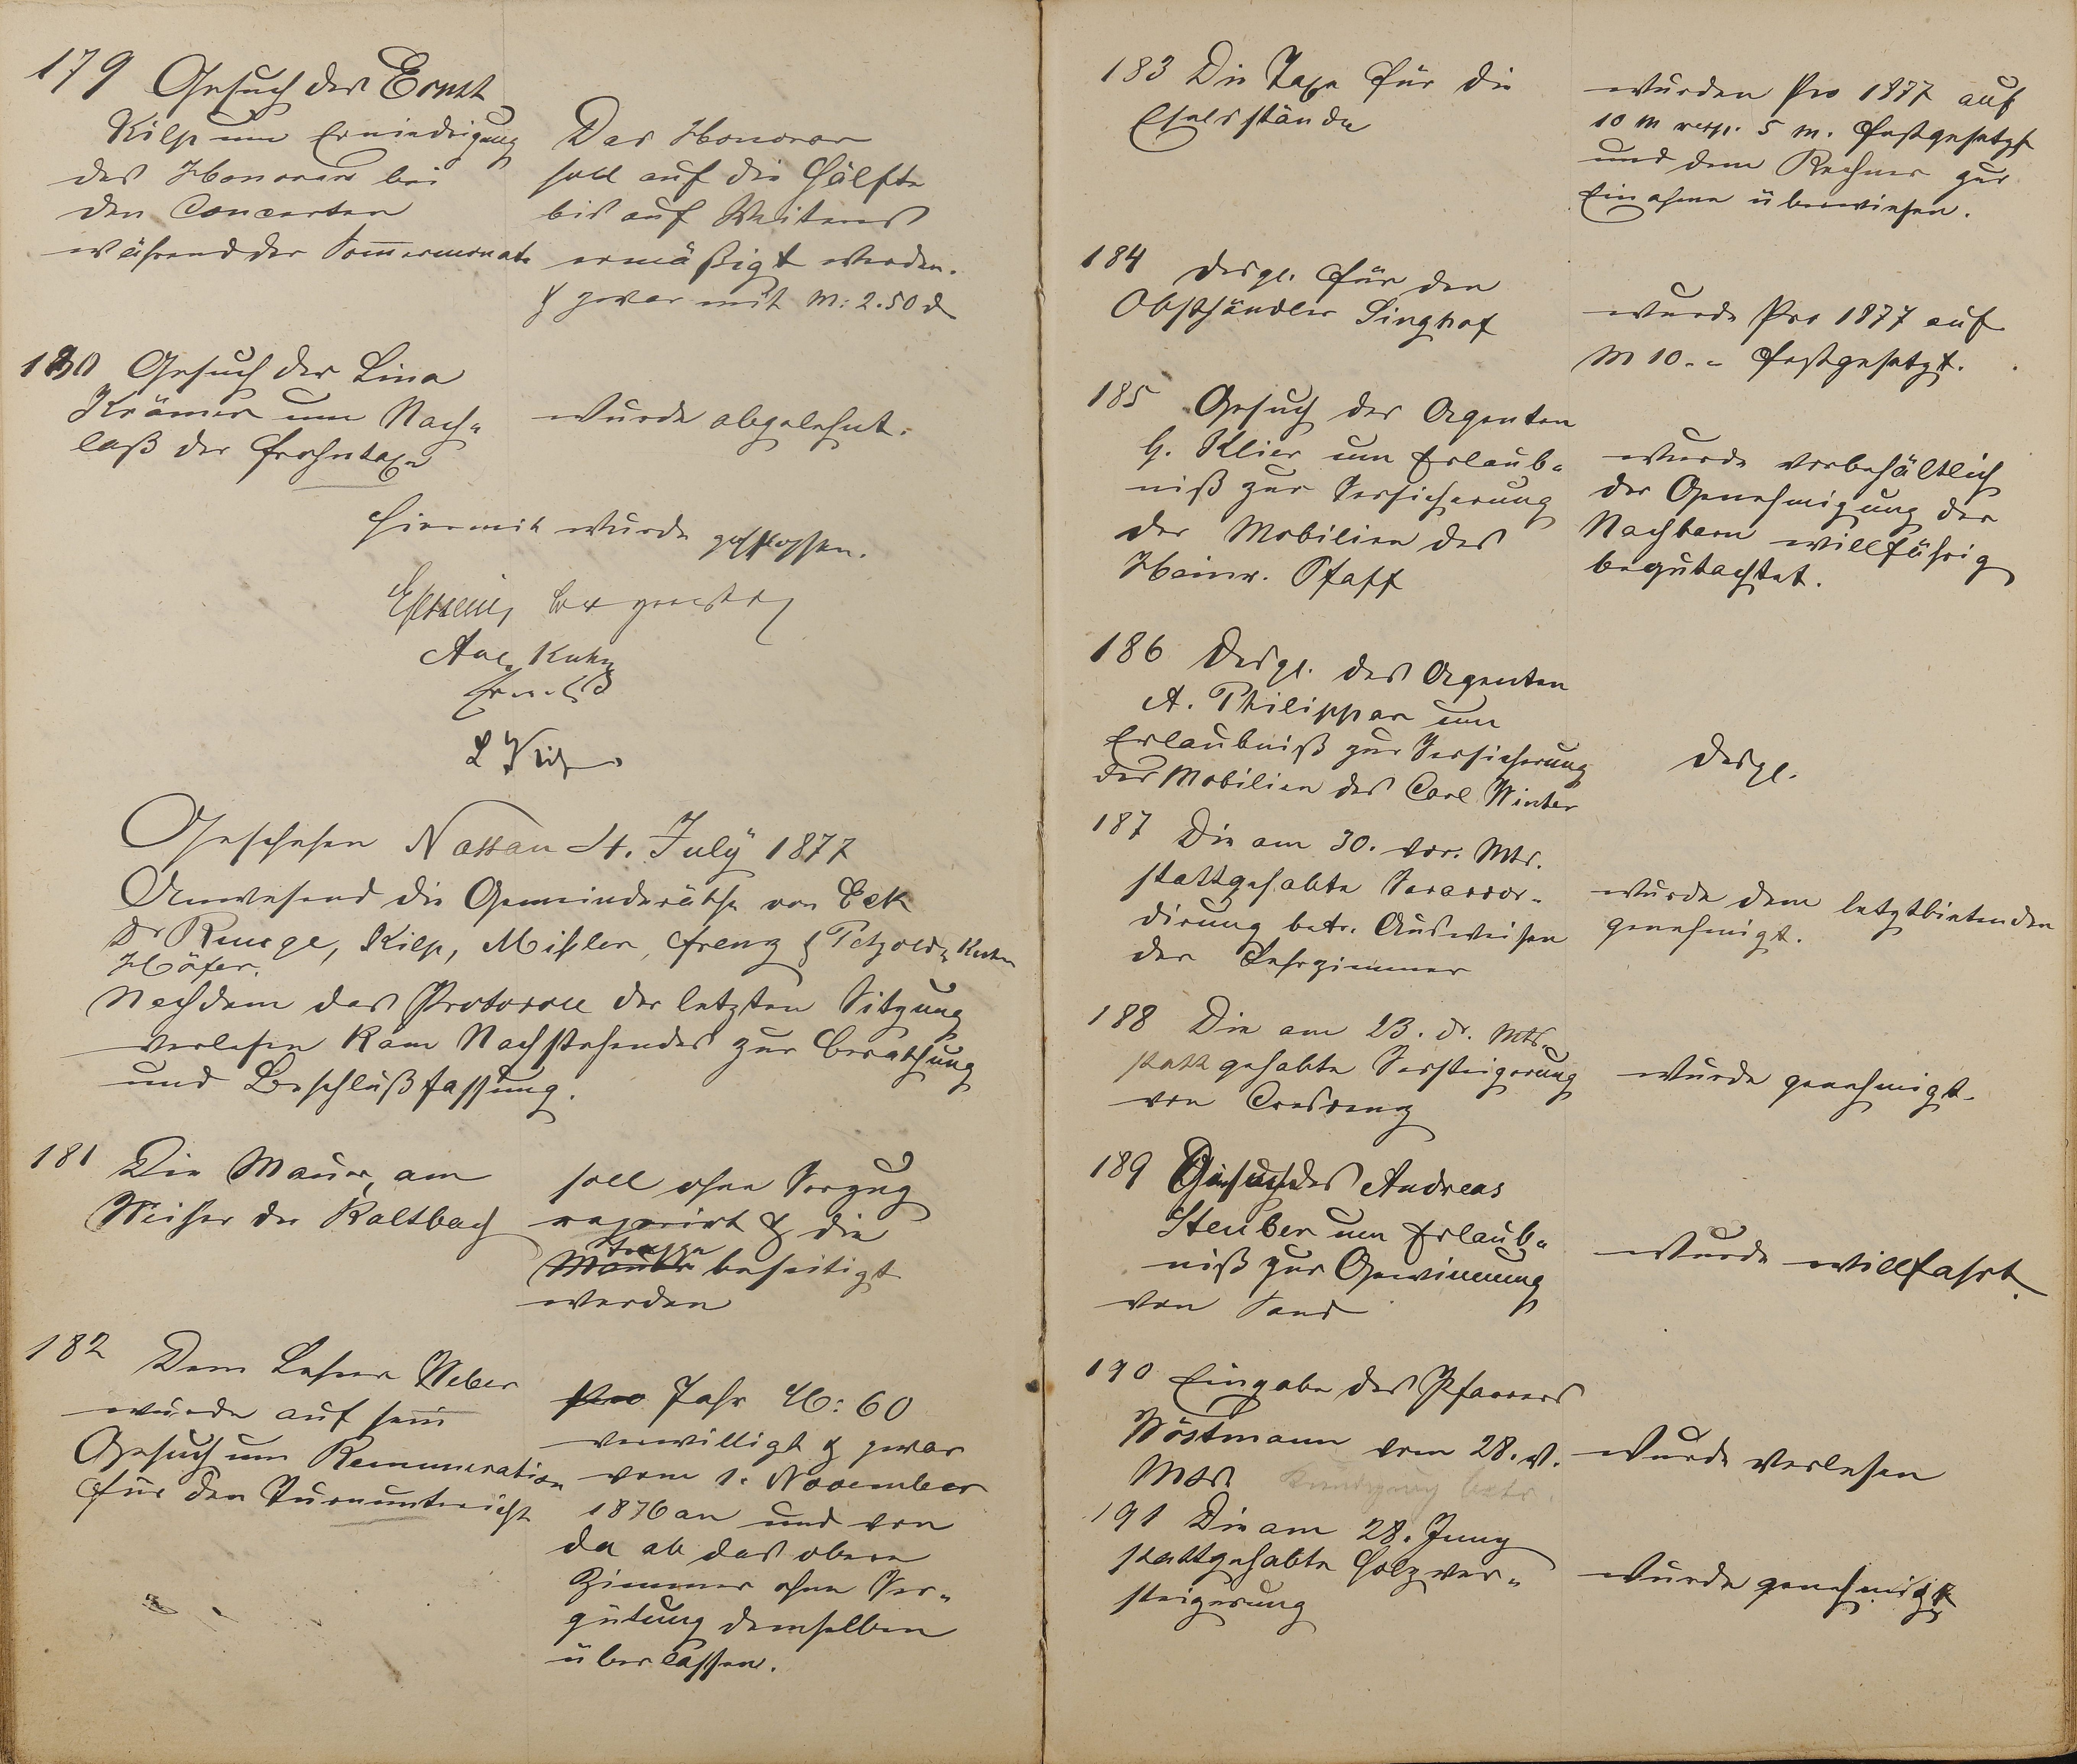 179 Gesuch des Ernst
Kilp um Erniedrigung
des Honorars bei
den Concerten
während der Som̄ermonate
Das Honorar
soll auf die Hälfte
bis auf Weiteres
ermäßigt werden.
& zwar mit M: 2.50 d
180 Gesuch der Lina
Krämer um Nach-
laß der Frohntaxe
wurde abgelehnt.
Hiermit wurde geschlossen.
Aug. Kuhn
Geschehen Nassau 4. July 1877
Anwesend die Gemeinderäthe von Eck
Dr Runge, Kilp, Mißler, Frenz & Petzold, Kuhn
Höfer.
Nachdem das Protocoll der letzten Sitzung
verlesen kam Nachstehendes zur Berathung
und Beschlußfassung.
181 Die Mauer am
Weiher der Kaltbach
soll ohne Verzug
reparirt & die
Treppe
Mauer beseitigt
werden
182 Dem Lehrer Weber
wurde auf sein
Gesuch um Remuneration
für den Turnunterricht
pro Jahr M: 60
verwilligt & zwar
vom 1. November
1876 an und von
da ab das obere
Zimmer ohne Ver-
gütung demselben
überlassen.
183 Die Taxe für die
Eselsstände
wurden Pro 1877 auf
10 M resp. 5 M. festgesetzt
und dem Rechner zur
Einahme überwiesen.
184 desgl. für den
Obsthändler Singhof
wurde Pro 1877 auf
M 10.- festgesetzt.
185 Gesuch des Agenten
H. Klier um Erlaub-
niß zur Versicherung
der Mobilien des
Heinr. Pfaff
wurde vorbehältlich
der Genehmigung der
Nachbarn willfährig
begutachtet.
186 Desgl. des Agenten
A. Philippar um
Erlaubniß zur Versicherung
der Mobilien des Carl Winter
desgl.
187 Die am 30. vor. Mts.
stattgehabte Veraccor-
dirung betr. Ausweisen
der Lehrzimmer
wurde dem letztbietenden
genehmigt.
188 Die am 23. v. Mts.
statt gehabte Versteigerung
von Crescenz
wurde genehmigt.
189 Gesuch des Andreas
Steuber um Erlaub-
niß zur Gewinnung
von Sand
wurde willfahrt.
190 Eingabe des Pfarrers
Wöstmann vom 28. v.
Mts. Kündigung betr.
wurde verlesen
191 Die am 28. Juny
stattgehabte Holzver-
steigerung
wurde genehmigt